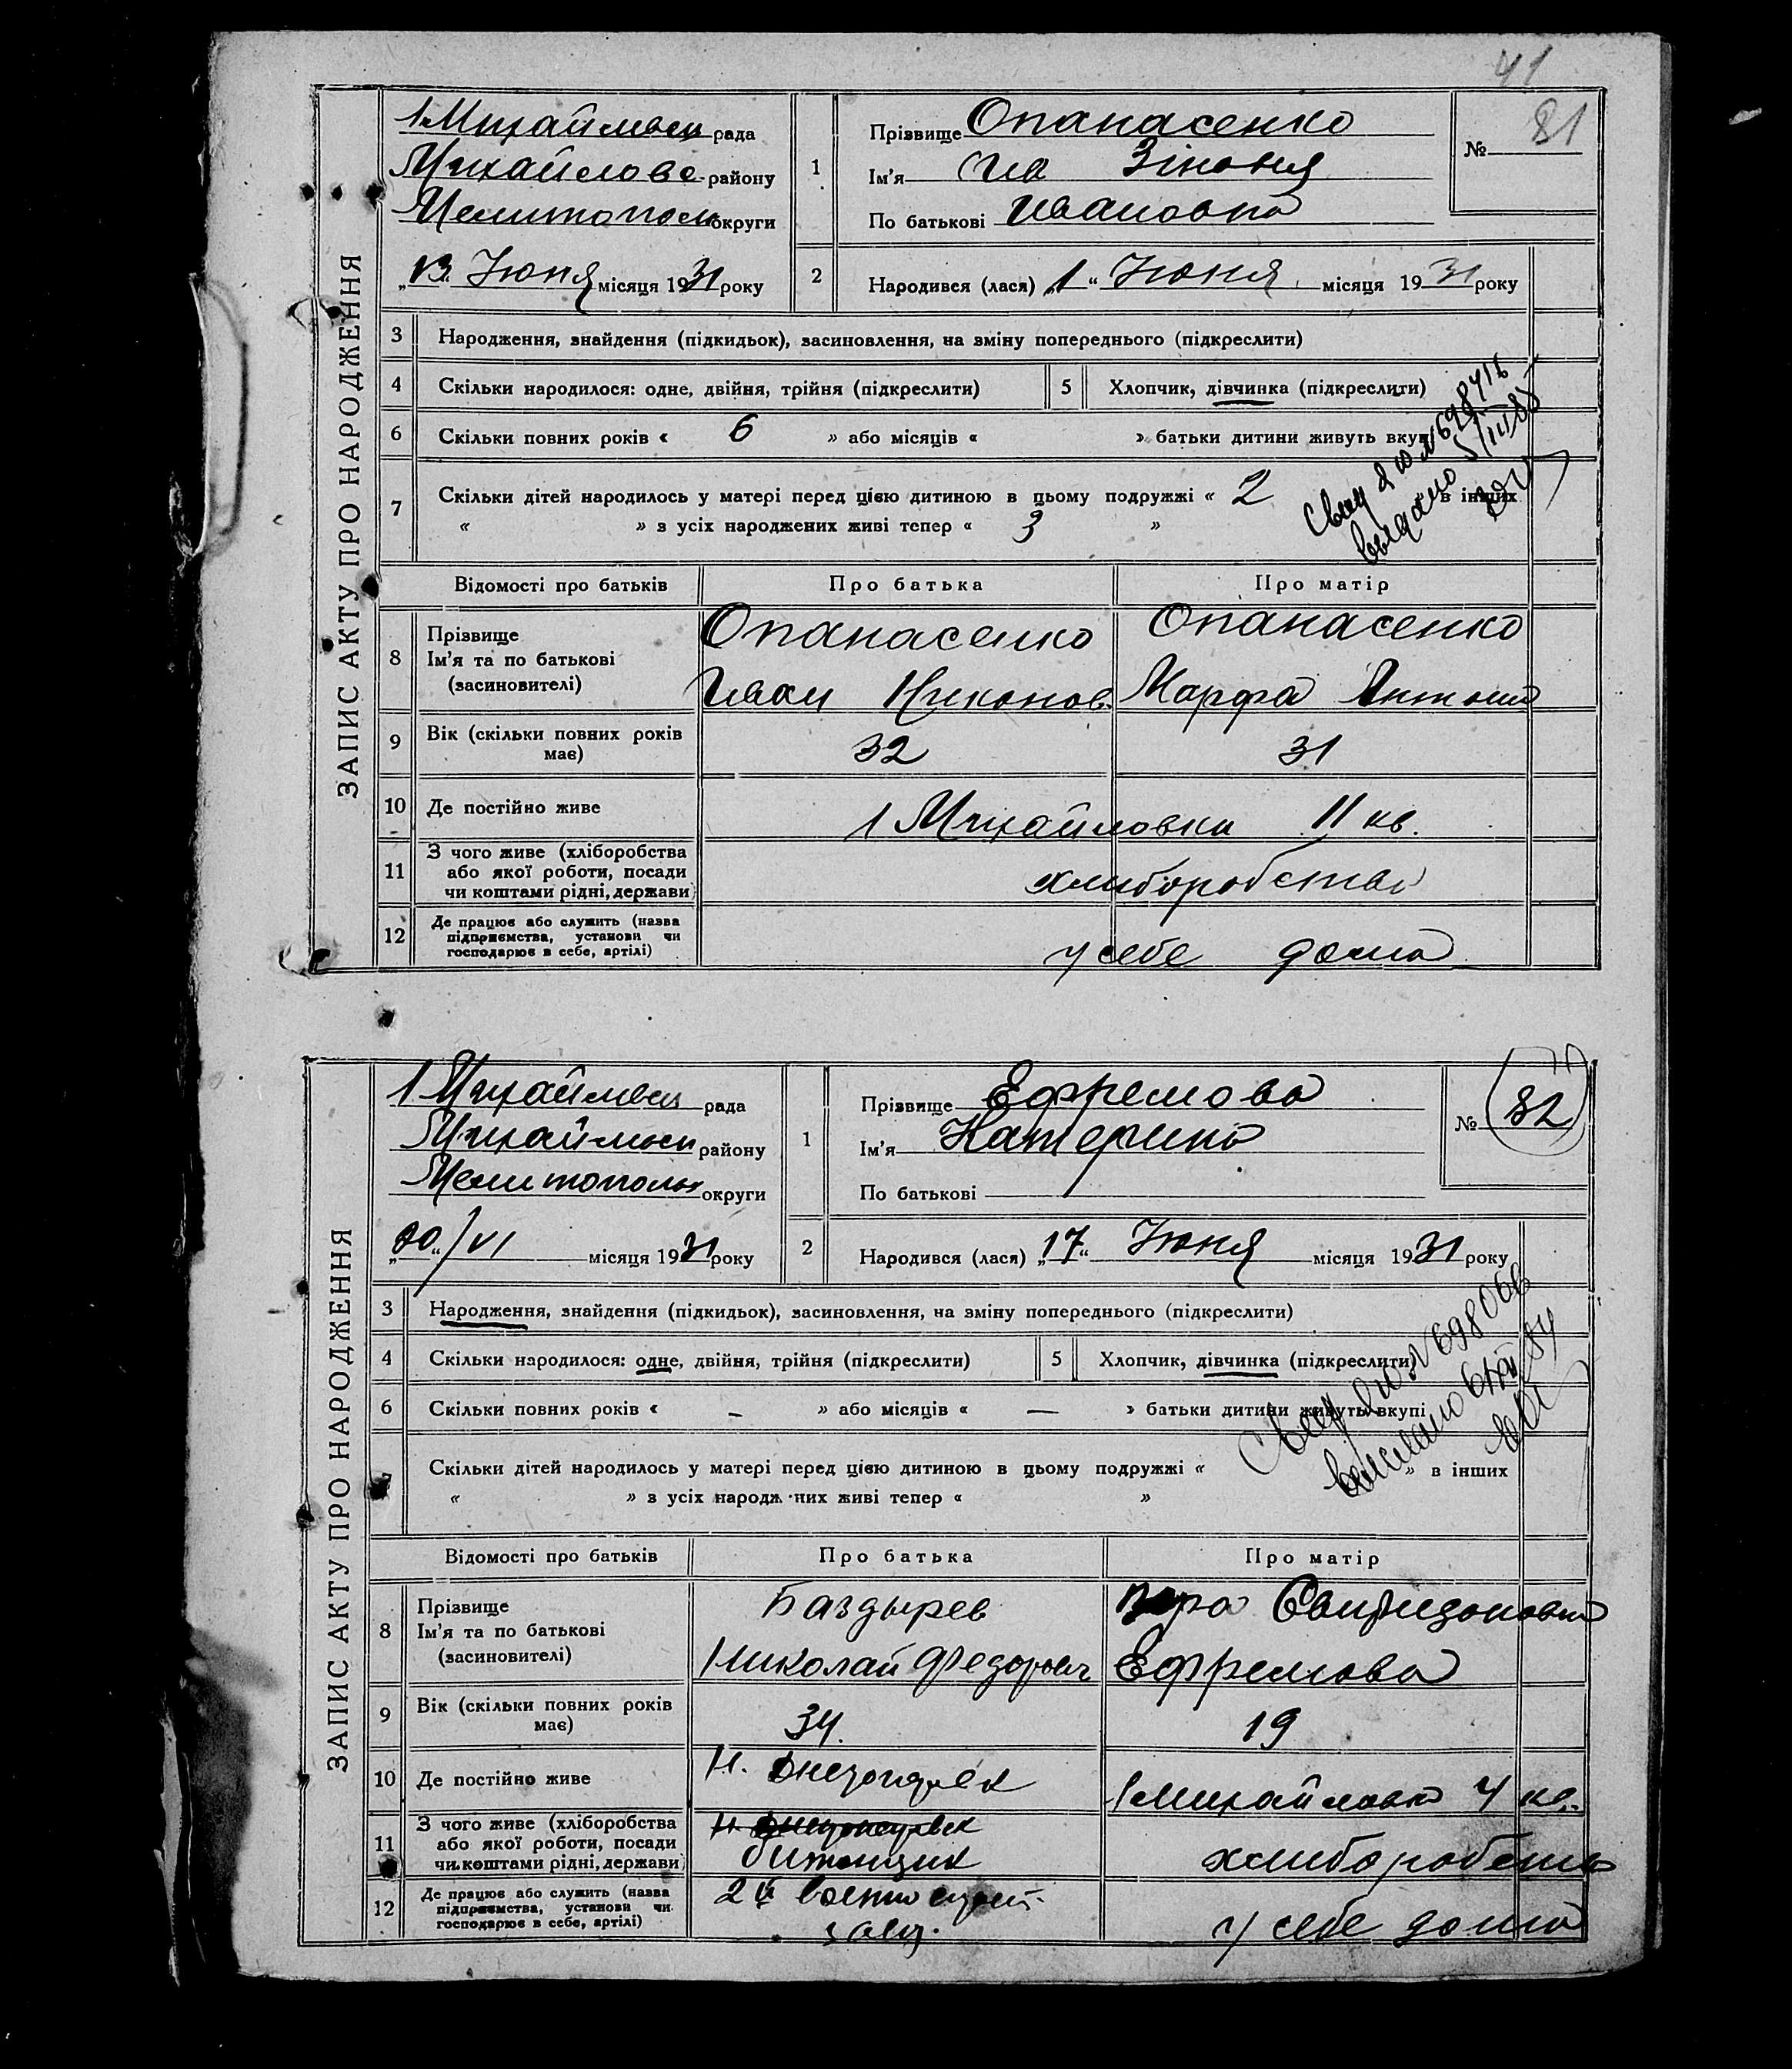 41
ЗАПИС АКТУ ПРО НАРОДЖЕННЯ
1 Михайлівськ рада
Михайловс. району
Мелитопольс округи
„13" Июня місяця 1931 року
1
Прізвище Опанасенко
Ім'я Зіновия
По батькові Ивановна
№ 81
2
Народився (лася) „1" Июня місяця 1931 року
3 Народження, знайдення (підкидьок), засиновлення, на зміну попереднього (підкреслити)
4 Скільки народилося: одне, двійня, трійня (підкреслити)
5 Хлопчик, дівчинка (підкреслити)
6 Скільки повних років « 6 » або місяців « » батьки дитини живуть вкупі
7 Скільки дітей народилось у матері перед цією дитиною в цьому подружжі « 2 » в інших
« » з усіх народжених живі тепер « 3 »
Відомості про батьків Про батька Про матір
8 Прізвище
Ім'я та по батькові
(засиновителі)
Опанасенко
Иван Никонов.
Опанасенко
Марфа Антонов
9 Вік (скільки повних років має)
32 31
10 Де постійно живе
1 Михайловка 11 кв.
11 З чого живе (хліборобства
або якої роботи, посади
чи коштами рідні, держави)
хлиборобство
12 Де працює або служить (назва
підприємства, установи чи
господарює в себе, артілі)
у себе дома
ЗАПИС АКТУ ПРО НАРОДЖЕННЯ
1 Михайлівськ рада
Михайлівськ району
Мелитопольс округи
/VI місяця 1931 року
1
Прізвище Ефремова
Ім'я Катерина
По батькові
№ 82
2
Народився (лася) „17" Июня місяця 1931 року
3 Народження, знайдення (підкидьок), засиновлення, на зміну попереднього (підкреслити)
4 Скільки народилося: одне, двійня, трійня (підкреслити)
5 Хлопчик, дівчинка (підкреслити)
6 Скільки повних років « – » або місяців « — » батьки дитини живуть вкупі
7 Скільки дітей народилось у матері перед цією дитиною в цьому подружжі « » в інших
« » з усіх народжених живі тепер « »
Відомості про батьків Про батька Про матір
8 Прізвище
Ім'я та по батькові
(засиновителі)
Баздырев
Николай Федорович
Вера Свиридоновна
Ефремова
9 Вік (скільки повних років має)
34. 19
10 Де постійно живе
1 Михайловка 4 кв.
11 З чого живе (хліборобства
або якої роботи, посади
чи коштами рідні, держави)
хлиборобств
12 Де працює або служить (назва
підприємства, установи чи
господарює в себе, артілі)
у себе дома